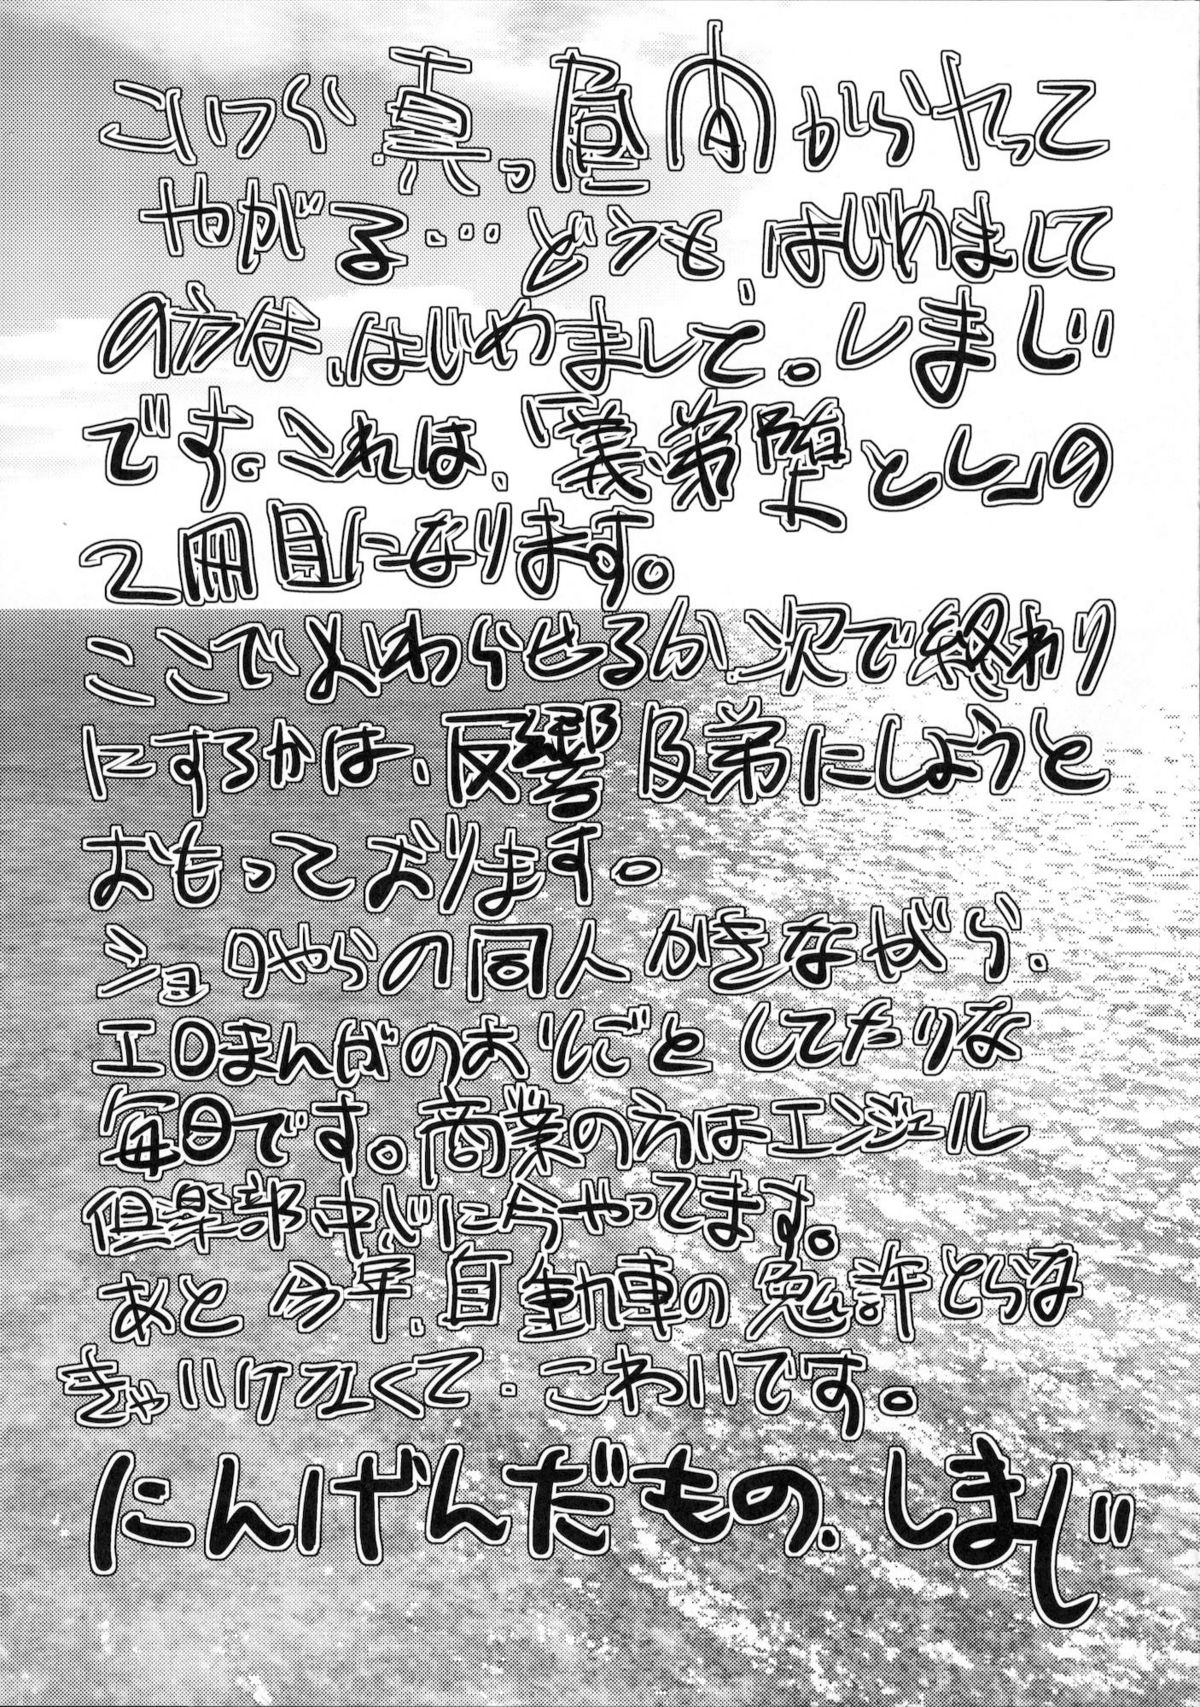 こいつら真っ昼間からヤって
やがる…どうも、はじめまして
の方は、はじめまして。しまじ
です。これは、「義弟堕とし」の
2冊目になります。
ここでおわらせるか、次で終わり
にするかは、反響及弟にしようと
おもっております。
ショタやらの同人かきながら、
エロまんがのおしごとしてたりな
毎日です。商業の方はエンジェル
倶楽部中心に今やってます。
あと今年、自動車の免許とらな
きゃいけなくて、こわいです。
にんげんだもの、しまじ